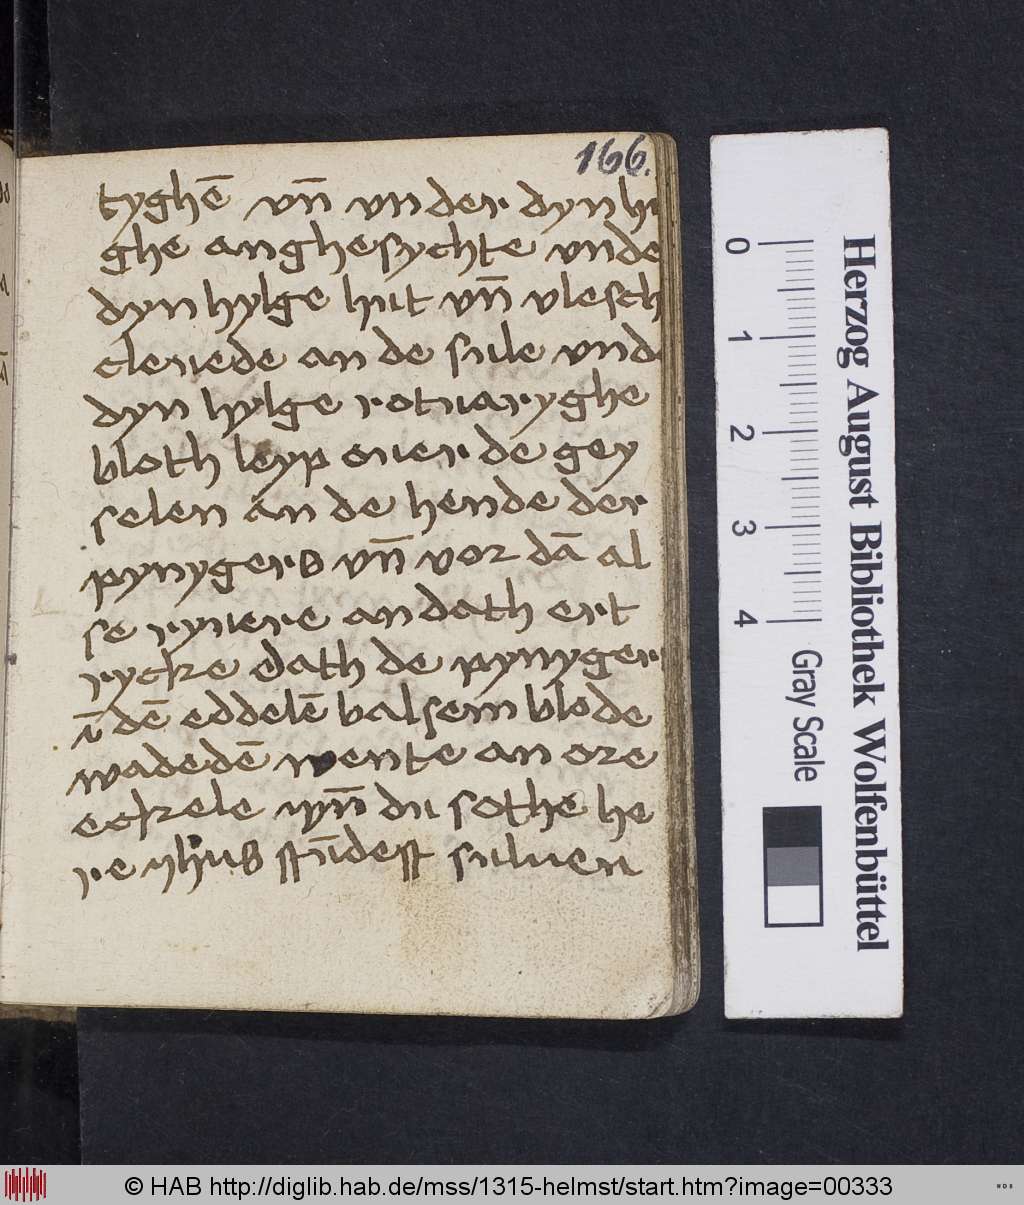 166.
tyghē vn̄ vnder dyn hil
ghe anghesychte vnde
dyn hylge hut vn̄ vlesch
cleuede an de sule vnde
dyn hylge rotuaryghe
bloth leyp ouer de gey
selen an de hende der
pynygers vn̄ vor dā al
se ryuere an dath ert
rycke dath de pynyger
ī dē eddelē balsem blode
wadedē wente an ore
eckele vn̄ du sothe he
re yhūs stūdest suluen
Herzog August Bibliothek Wolfenbüttel
0 1 2 3 4
Gray Scale
© HAB http://diglib.hab.de/mss/1315-helmst/start.htm?image=00333